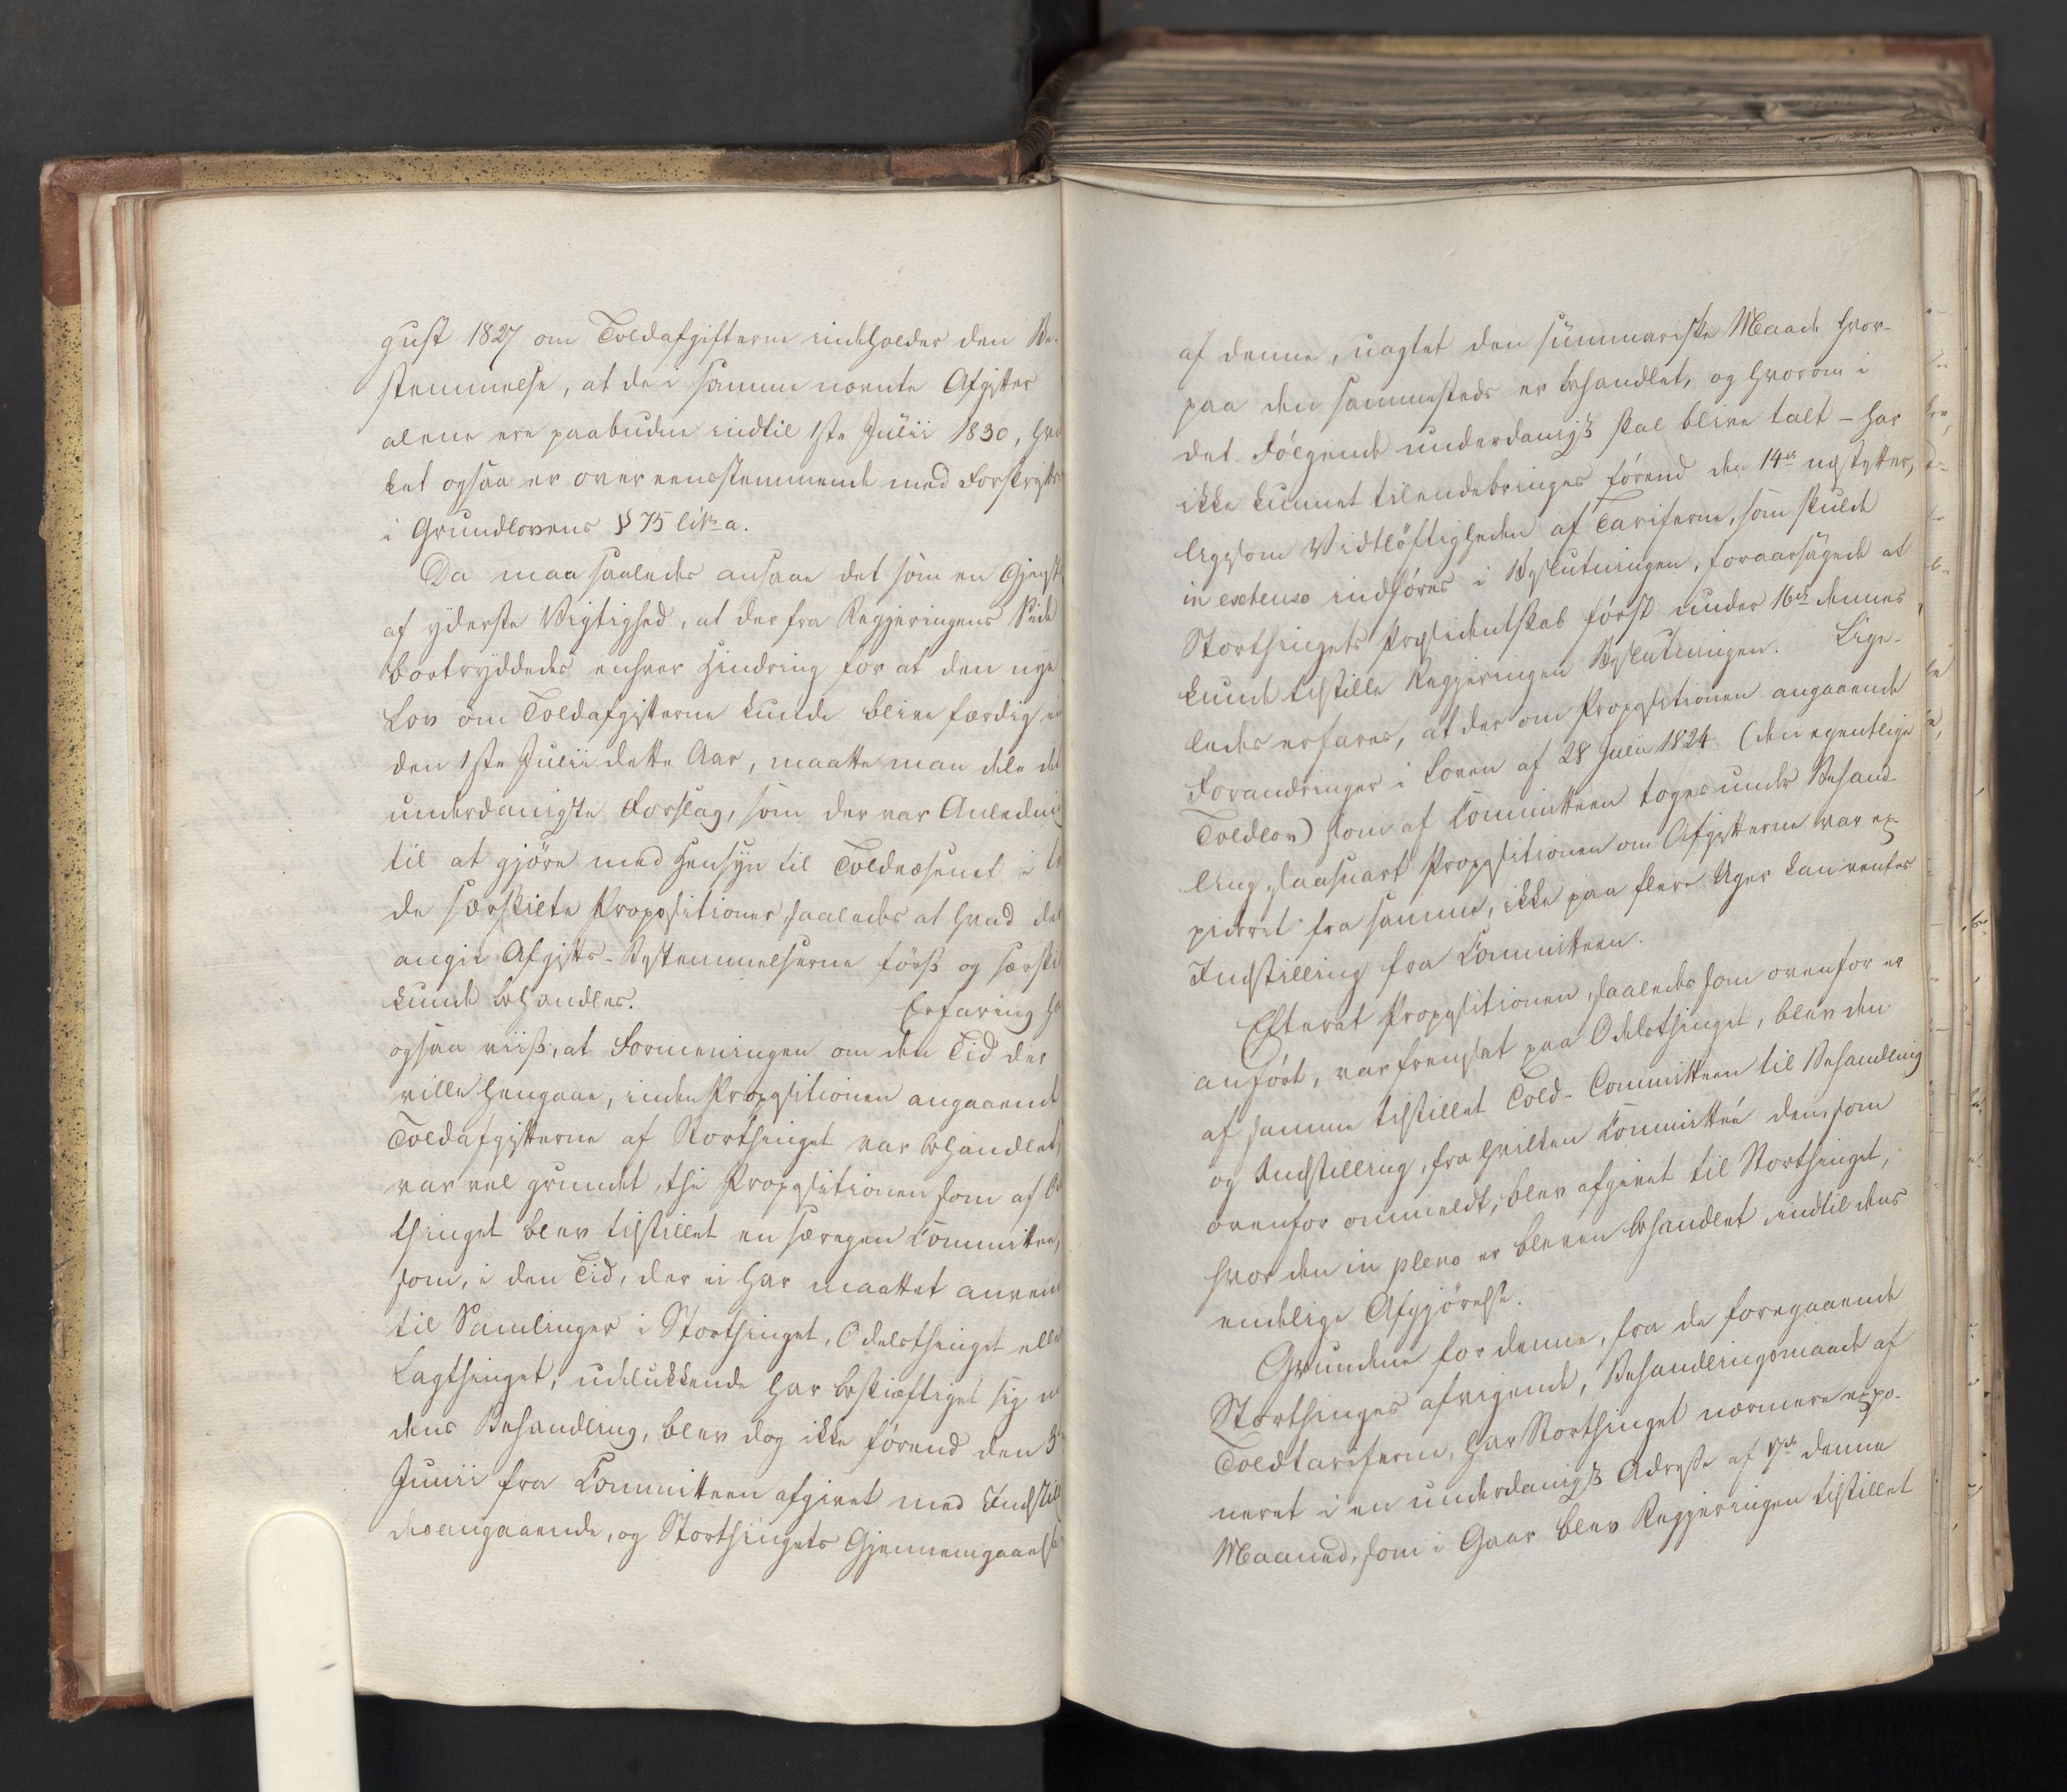 gust 1827 om Toldafgifterne indeholder den Be-
stemmelse, at de i samme nævnte Afgifter
alene ere paabudne indtil 1ste Julii 1830, hvil
ket ogsaa er overeensstemmende med Forskrift
i Grundlovens § 75 litr a.
Da maa saaledes ansaae det som en Gjenst
af yderste Vigtighed, at der fra Regjeringens Side
bortryddedes enhver Hindring for at den nye
Lov om Toldafgifterne kunde blive færdig in
den 1ste Julii dette Aar, maatte man dele det
underdanigste Forslag, som der var Anlednin
til at gjöre med Hensyn til Toldvæsenet i to
de særskilte Propositioner, saaledes at hvad der
angik Afgifts-Bestemmelserne förß og særskil
kunde behandles. Erfaring ha
ogsaa viiß, at Formeningen om den Tid der
ville hengaae, inden Propositionen angaaende
Toldafgifterne af Storthinget var behandlet,
var vel grundet, thi Propositionen som af O
thinget blev tilstillet en særegen Committee,
som, i den Tid, der ei har maattet anven
til Samlinger i Storthinget, Odelsthinget elle
Lagthinget, udelukkende har beskiæftiget sig m
dens Behandling, blev dog ikke förend den 3
Junii fra Committeen afgivet med Indstill
desangaaende, og Storthingets Gjennemgaaelse
af denne, uagtet den summariske Maade hvor-
paa den sammesteds er behandlet, og hvorom i
det Fölgende underdanigß skal blive talt - har
ikke kunnet tilendebringes förend den 14de næstefter,
ligesom Vidtlöftigheden af Tarifferne, som skulde
in extenso indföres i Beslutningen, foraarsagede at
Storthingets Præsidentskab först under 16de dennes
kunde tilstille Regjeringen Beslutningen. Lige-
ledes erfares, at der om Propositionen angaaende
Forandringer i Loven af 28 Julii 1824 (den egentlige
Toldlov) som af Committeen toges under Behand-
ling, saasnart Propositionen om Afgifterne var ex-
pideret fra samme, ikke paa flere Uger kan ventes
Indstilling fra Committeen.
Efterat Propositionen, saaledes som ovenfor er
anfört, var fremsat paa Odelsthinget, blev den
af samme tilstillet Told-Committeen til Behandling
og Indstilling, fra hvilken Committée den, som
ovenfor ommeldt, blev afgivet til Storthinget,
hvor den in pleno er bleven behandlet indtil dens
endelige Afgjörelse.
Grundene for denne, fra de foregaaende
Storthinges afvigende, Behandlingsmaade af
Toldtarifferne, har Storthinget nærmere expo-
neret i en underdanigß Adresse af 17de denne
Maaned, som i Gaar blev Regjeringen tilstillet